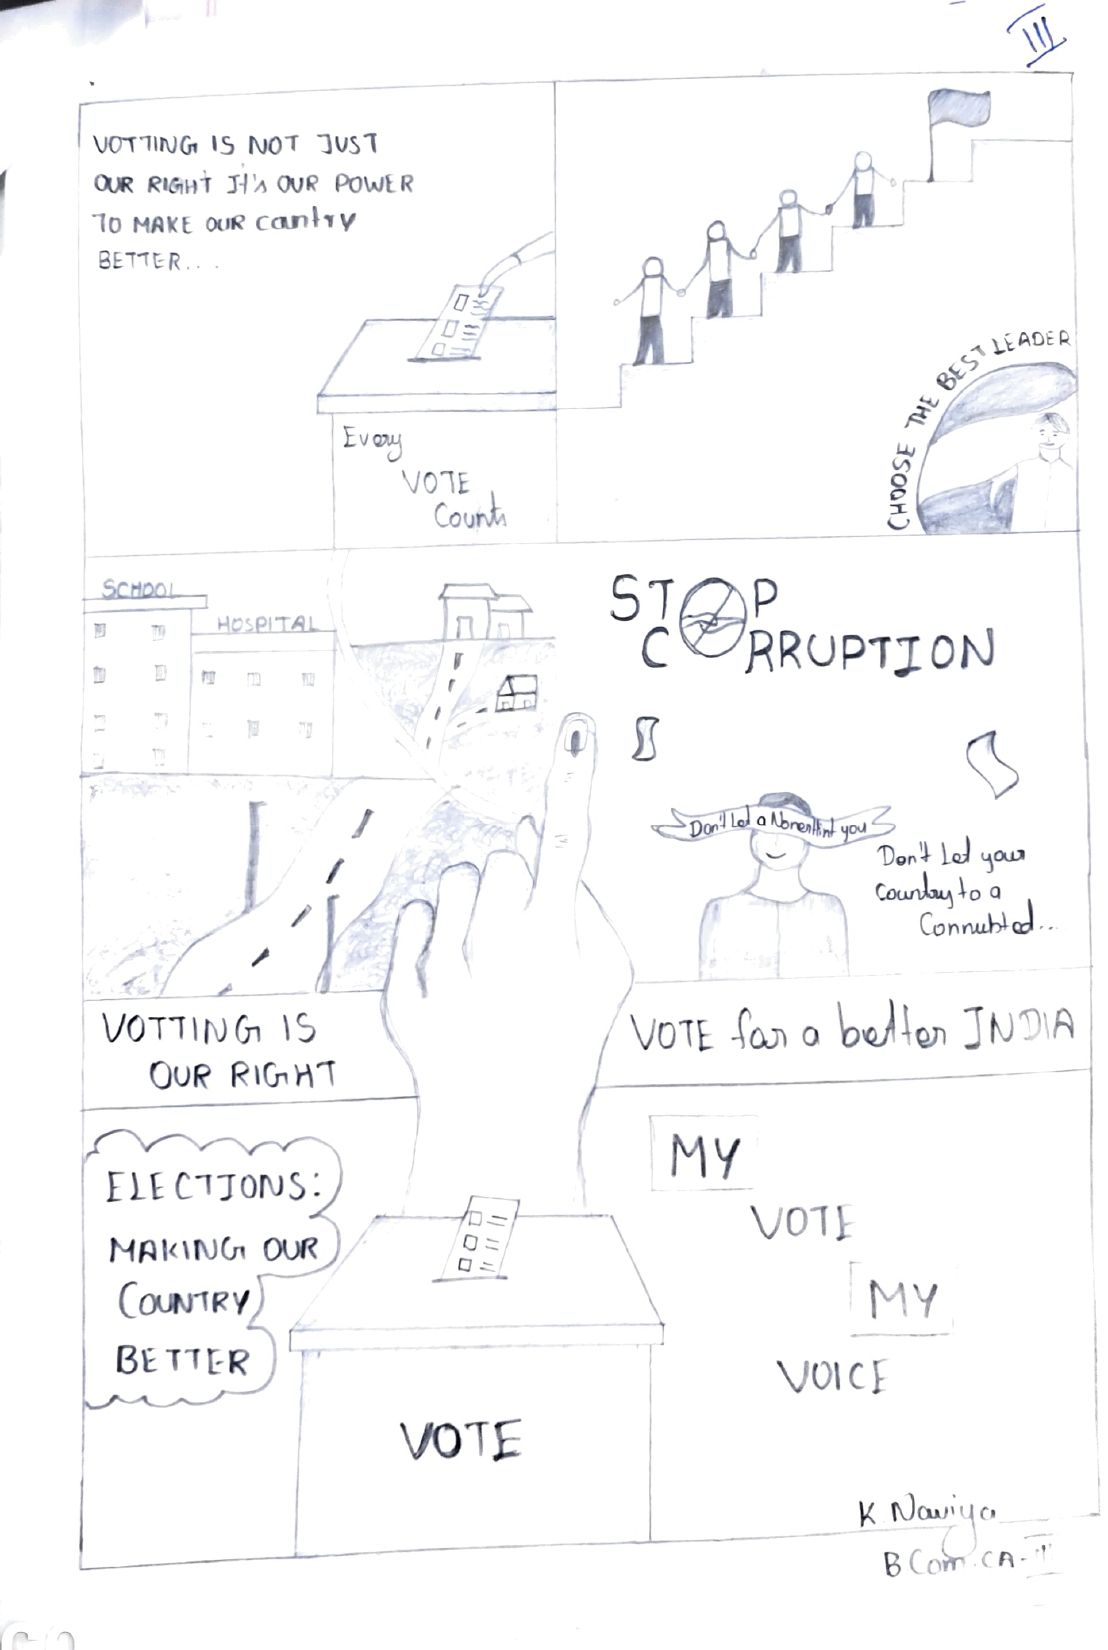 III
VOTTING IS NOT JUST
OUR RIGHT It's OUR POWER
TO MAKE OUR cantry
BETTER....
Every
VOTE
Counts
CHOOSE THE BEST LEADER
SCHOOL
HOSPITAL
STOP
CORRUPTION
Don't Let a
you
Don't Let your
Country to a
VOTTING IS
OUR RIGHT
VOTE for a better INDIA
ELECTIONS:
MAKING OUR
COUNTRY
BETTER
MY
VOTE
MY
VOICE
VOTE
K. Naviya
B Com. CA-